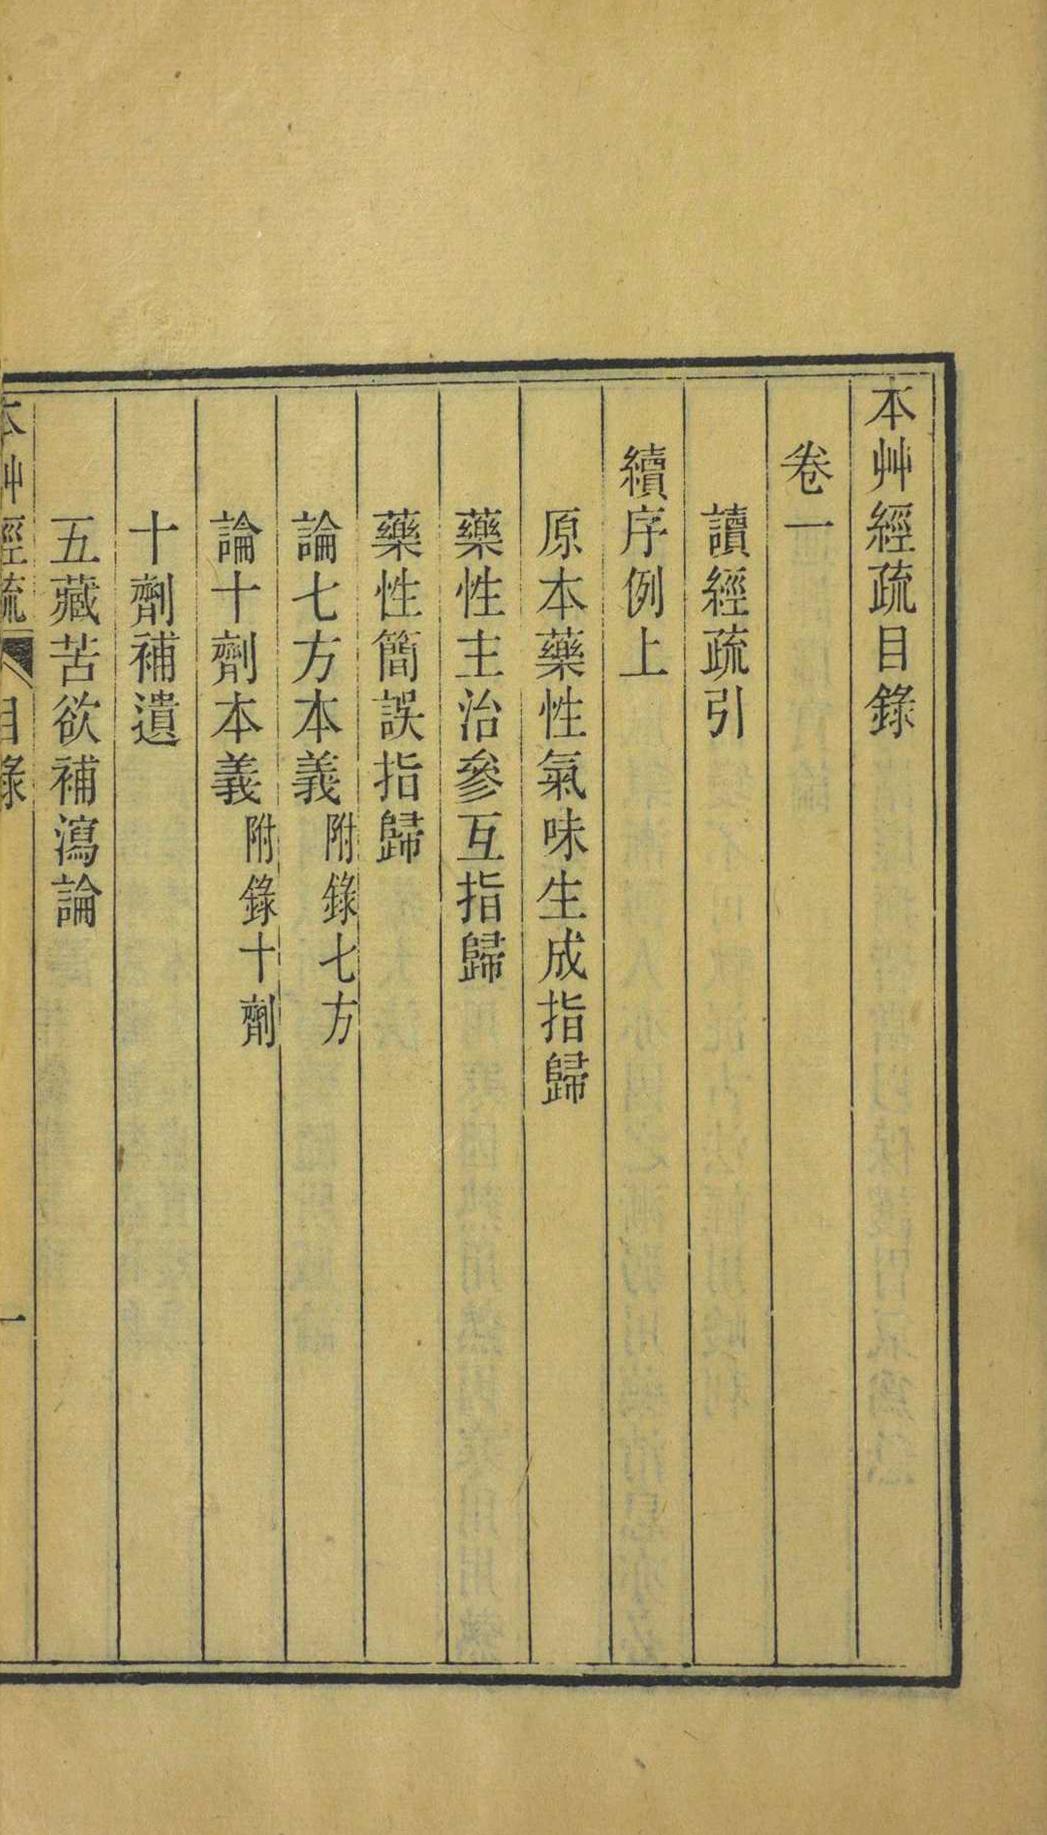 本艸經疏目錄
卷一
讀經疏引
續序例上
原本藥性氣味生成指歸
藥性主治參互指歸
藥性簡誤指歸
論七方本義 附錄七方
論十劑本義 附錄十劑
十劑補遺
五藏苦欲補瀉論
本艸經疏 目錄 一